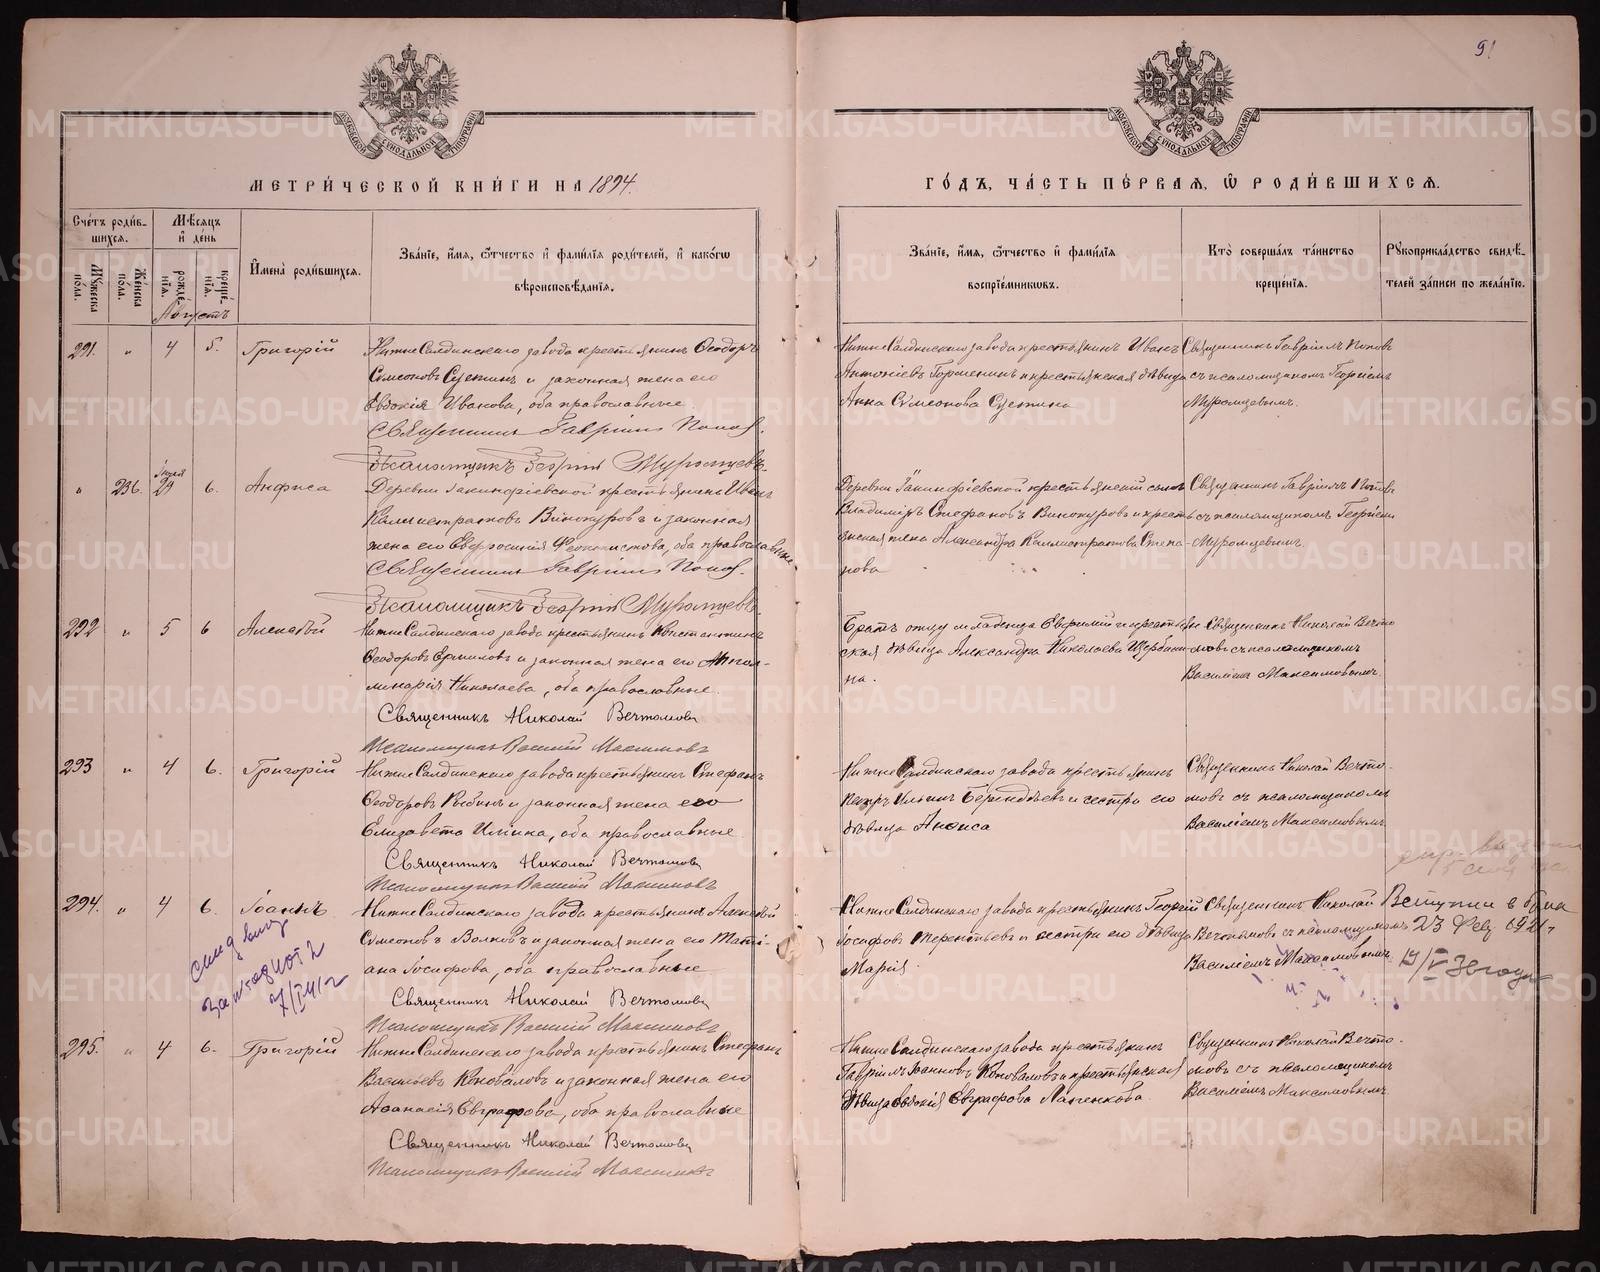 91
МОСКОВСКОЙ СѴНОДАЛЬНОЙ ТИПОГРАФІИ
МОСКОВСКОЙ СѴНОДАЛЬНОЙ ТИПОГРАФІИ
МЕТРИ́ЧЕСКОЙ КНИ́ГИ НА 1894.
ГО́ДЪ, ЧА́СТЬ ПЕ́РВАЯ, Ѽ РОДИ́ВШИХСЯ.
Сче́тъ роди́в-
шихся.
Му́жеска по́ла.
Же́нска по́ла.
Мѣ́сяцъ
и҆ де́нь
рожде́-
нїѧ.
креще́-
нїѧ.
Августъ
И҆мена̀ роди́вшихся.
Зва́нїе, и҆́мѧ, ѻ҆́тчество и҆ фами́лїѧ роди́телей, и҆ како́гѡ
вѣроисповѣ́данїѧ.
Зва́нїе, и҆́мѧ, ѻ҆́тчество и҆ фами́лїѧ
воспрїе́мникѡвъ.
Кто̀ соверша́лъ та́инство
креще́нїѧ.
Рꙋкоприкла́дство свидѣ́-
телей за́писи по жела́нїю.
291. " 4 5. Григорій
НижнеСалдинскаго завода крестьянинъ Ѳеодоръ
Сѵмеоновъ Сустинъ и законная жена его
Евдокія Иванова, оба православные
Священникъ Гавріилъ Попов.
Псаломщикъ Георгій Муромцевъ.
НижнеСалдинскаго завода крестьянинъ Иванъ
Антоніевъ Гормелинъ и крестьянская дѣвица
Анна Сѵмеонова Сустина
Священникъ Гавріилъ Поповъ
съ псаломщикомъ Георгіемъ
Муромцевымъ.
" 236. Іюля 29 6. Анфиса
Деревни Іакинфіевской крестьянинъ Иванъ
Каллистратовъ Винокуровъ и законная
жена его Евфросинія Ѳеоктистова, оба православные
Священникъ Гавріилъ Попов.
Псаломщикъ Георгій Муромцевъ
Деревни Іакинфіевской крестьянскій сынъ
Владиміръ Стефановъ Винокуровъ и кресть-
янская жена Александра Каллистратова Степа-
нова
Священникъ Гавріилъ Поповъ
съ псаломщикомъ Георгіемъ
Муромцевымъ.
292 " 5 6 Алексѣй
НижнеСалдинскаго завода крестьянинъ Константинъ
Ѳеодоровъ Ермиловъ и законная жена его Апол-
линарія Николаева, оба православные.
Священникъ Николай Вечтомовъ
Псаломщикъ Василій Максимовъ
Братъ отцу младенца Евфимій и крестьян-
ская дѣвица Александра Николаева Щербани-
на.
Священникъ Николай Вечто-
мовъ съ псаломщикомъ
Василіемъ Максимовымъ.
293 " 4 6. Григорій
НижнеСалдинскаго завода крестьянинъ Стефанъ
Ѳеодоровъ Рыбинъ и законная жена его
Елизавета Ильина, оба православные
Священникъ Николай Вечтомовъ
Псаломщикъ Василій Максимовъ
НижнеСалдинскаго завода крестьянинъ
Петръ Ильинъ Берендѣевъ и сестра его
дѣвица Анѳиса
Священникъ Николай Вечто-
мовъ съ псаломщикомъ
Василіемъ Максимовымъ
294. " 4 6. Іоаннъ
НижнеСалдинскаго завода крестьянинъ Алексѣй
Сѵмеоновъ Волковъ и законная жена его Таті-
ана Іосифова, оба православные
Священникъ Николай Вечтомовъ
Псаломщикъ Василій Максимовъ
НижнеСалдинскаго завода крестьянинъ Георгій
Іосифовъ Терентьевъ и сестра его дѣвица
Марія
Священникъ Николай
Вечтомовъ съ псаломщикомъ
Василіемъ Максимовымъ.
23 Фев
295. " 4 6. Григорій
НижнеСалдинскаго завода крестьянинъ Стефанъ
Васильевъ Коноваловъ и законная жена его
Аѳанасія Евграфова, оба православные
Священникъ Николай Вечтомовъ
Псаломщикъ Василій Максимовъ
НижнеСалдинскаго завода крестьянинъ
Гавріилъ Іоанновъ Коноваловъ и крестьянская
дѣвица Евдокія Евграфова Лапенкова.
Священникъ Николай Вечто-
мовъ съ псаломщикомъ
Василіемъ Максимовымъ.
METRIKI.GASO-URAL.RU